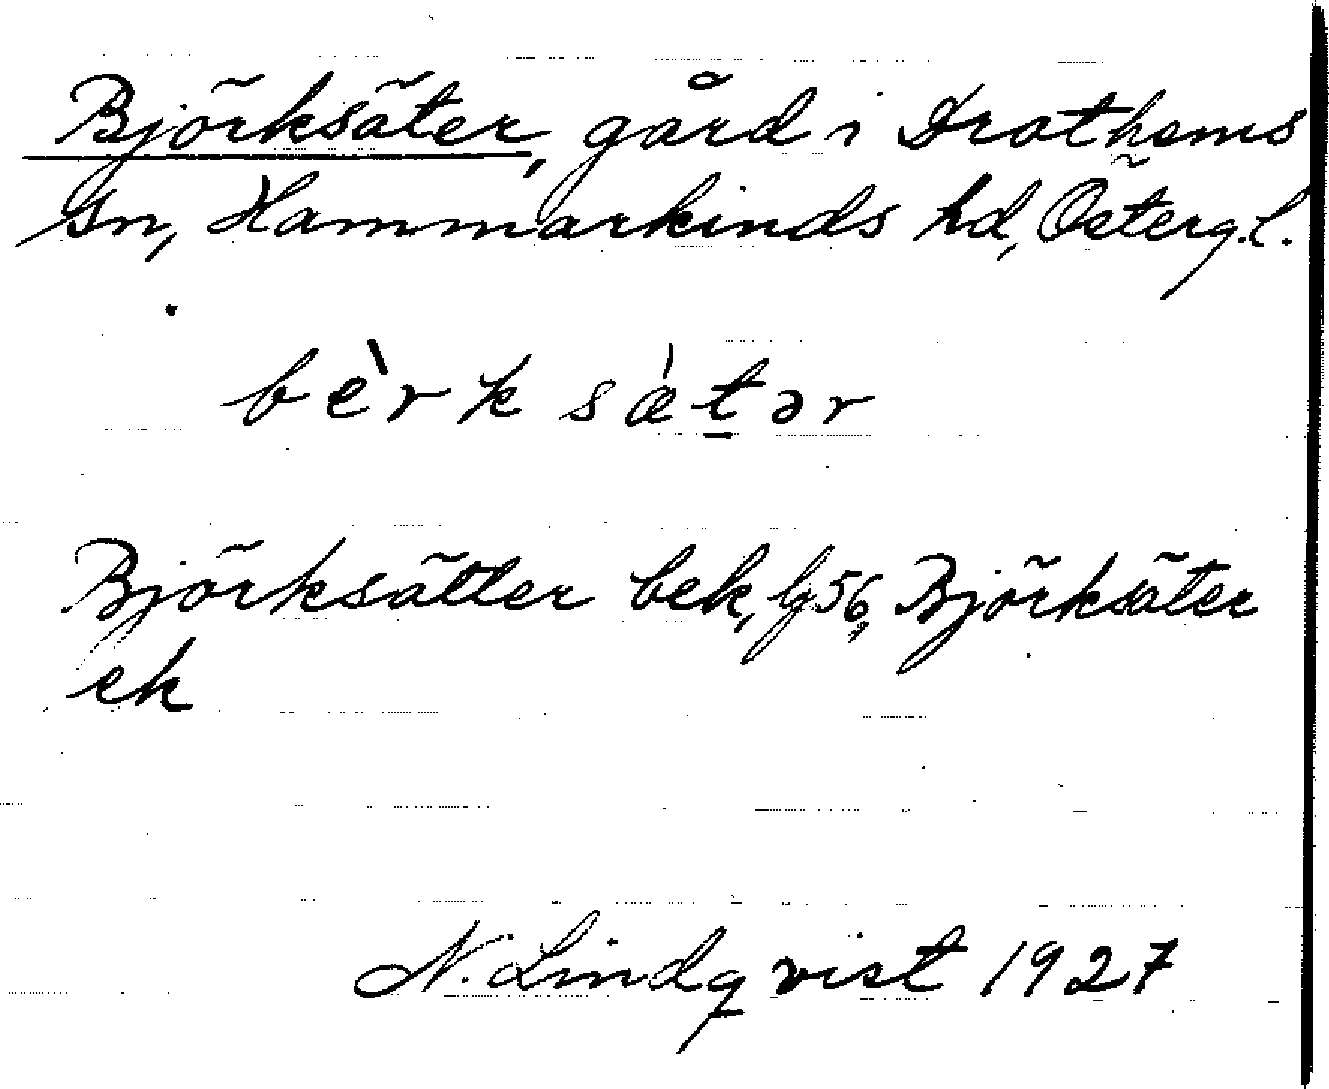 Björksäter, gård i Drothems
sn, Hammarkinds hd, Österg.l.
bèrk sá̀tər
Björksätter bek, gs 56, Björksäter
ek
N. Lindqvist 1927